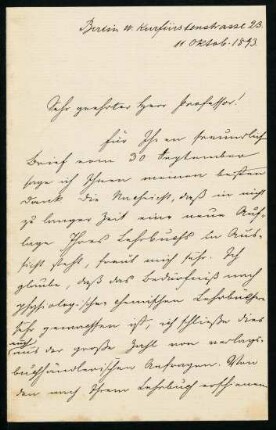 Berlin W. Kurfürstenstrasse 23.
11 Oktob. 1893.
Sehr geehrter Herr Professor!
Für Ihren freundlich
Brief vom 30 September
sage ich Ihnen meinen besten
Dank. Die Nachricht, daß in nicht
zu langer Zeit eine neue Auf-
lage Ihres Lehrbuchs in Aus-
sicht steht, freut mich sehr. Ich
glaube, daß das Bedürfniß nach
physiologischen chemischen Lehrbüchern
sehr gewachsen ist, ich schließe dies
auch aus der große Zahl von verlags-
buchhändlerischen Anfragen. Von
den nach Ihrem Lehrbuch erschienen